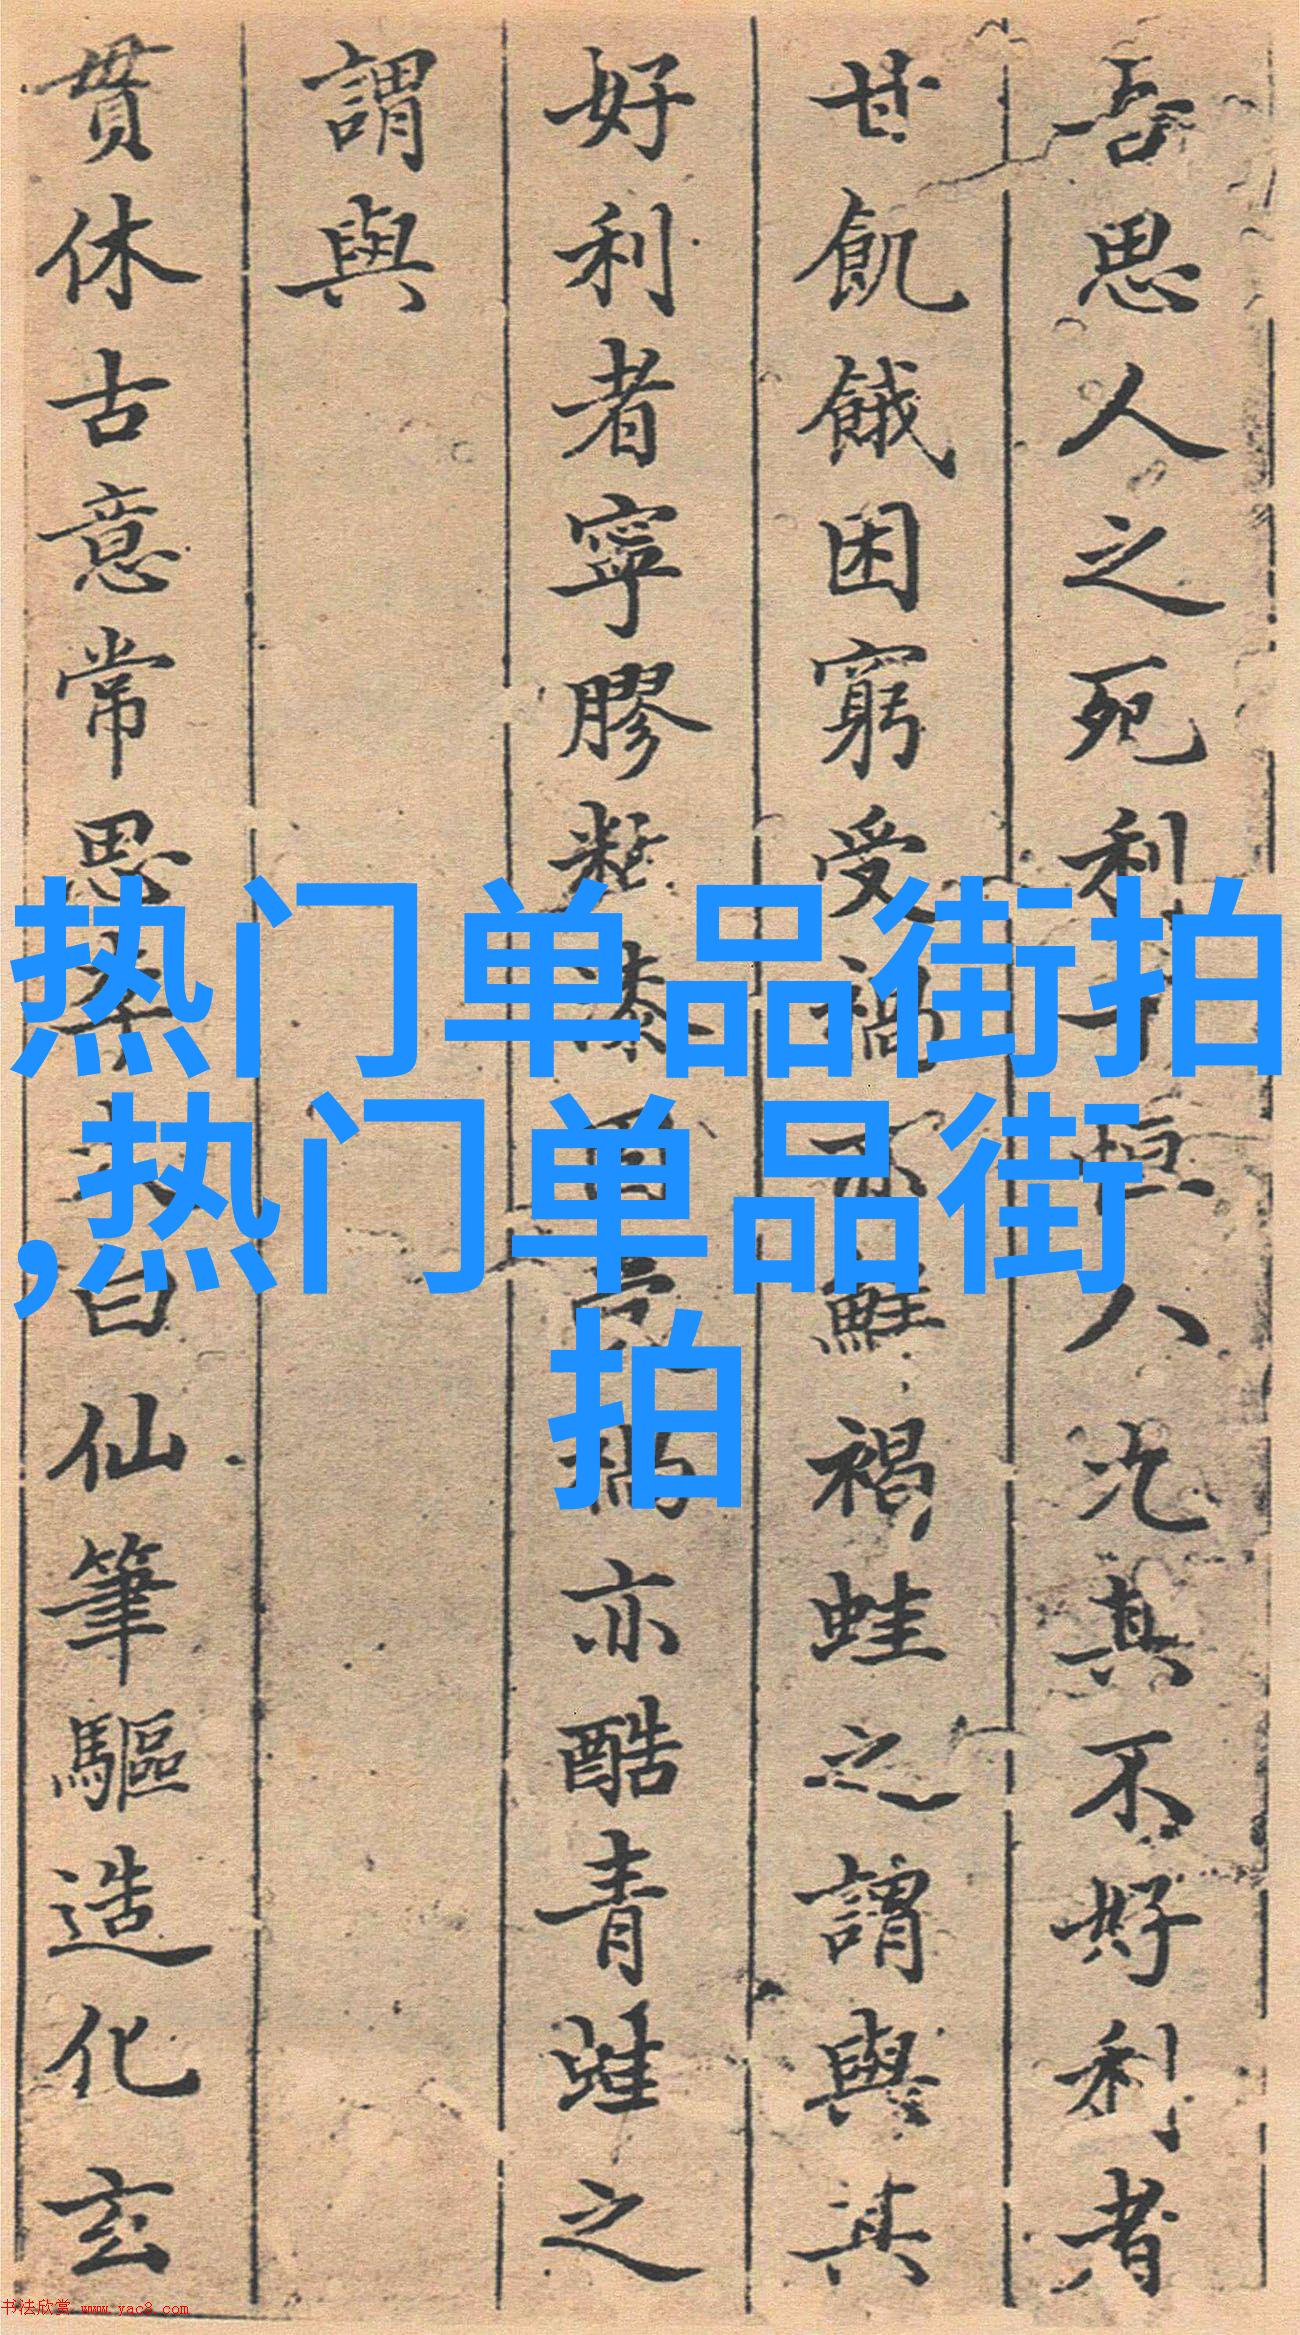 吾思人之死利恒人况其不好利者
甘飢餓困窮受禍亦鮭褐蛙之謂與其
好利者寧膠漆禍亦酷青蛙之
謂與
贯休古意常思李太白仙筆驅造化玄
热门单品街拍
,热门单品街
拍
书法欣赏 www.yac8.com